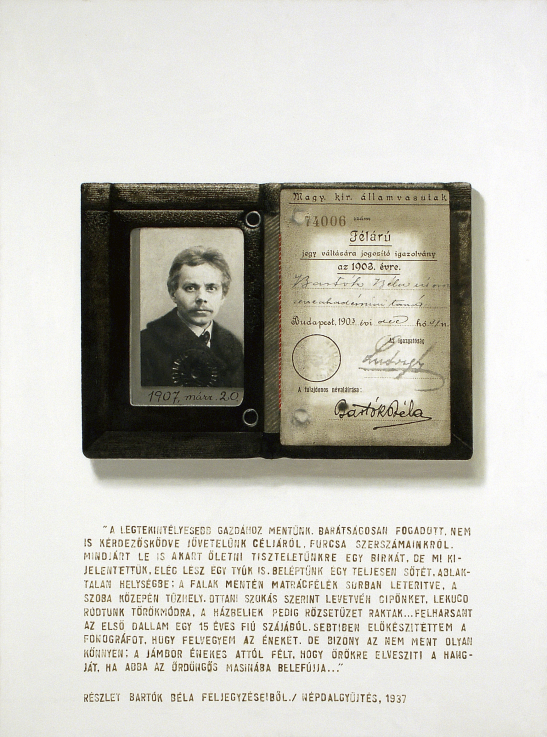 Magy. kir. államvasutak
74006 szám
Féláru
jegy váltására jogosító igazolvány
az 1903. évre.
Bartók Béla
Budapest, 1903. évi
Az igazgatóság
A tulajdonos névaláírása:
Bartók Béla
1907, márc. 20
"A LEGTEKINTÉLYESEBB GAZDÁHOZ MENTÜNK. BARÁTSÁGOSAN FOGADOTT, NEM
IS KÉRDEZŐSKÖDVE JÖVETELÜNK CÉLJÁRÓL, FURCSA SZERSZÁMAINKRÓL.
MINDJÁRT LE IS AKART ÖLETNI TISZTELETÜNKRE EGY BIRKÁT, DE MI KI-
JELENTETTÜK, ELÉG LESZ EGY TYÚK IS. BELÉPTÜNK EGY TELJESEN SÖTÉT, ABLAK-
TALAN HELYSÉGBE: A FALAK MENTÉN MATRACFÉLÉK SŰRŰN LETERÍTVE, A
SZOBA KÖZEPÉN TŰZHELY. OTTANI SZOKÁS SZERINT LEVETVÉN CIPŐNKET, LEKUCO
RODTUNK TÖRÖKMÓDRA, A HÁZBELIEK PEDIG RŐZSETÜZET RAKTAK... FELHARSANT
AZ ELSŐ DALLAM EGY 15 ÉVES FIÚ SZÁJÁBÓL. SEBTIBEN ELŐKÉSZÍTETTEM A
FONOGRÁFOT, HOGY FELVEGYEM AZ ÉNEKET. DE BIZONY AZ NEM MENT OLYAN
KÖNNYEN: A JÁMBOR ÉNEKES ATTÓL FÉLT, HOGY ÖRÖKRE ELVESZÍTI A HANG-
JÁT, HA ABBA AZ ÖRDÖNGŐS MASINÁBA BELEFÚJJA..."
RÉSZLET BARTÓK BÉLA FELJEGYZÉSEIBŐL./ NÉPDALGYŰJTÉS, 1937